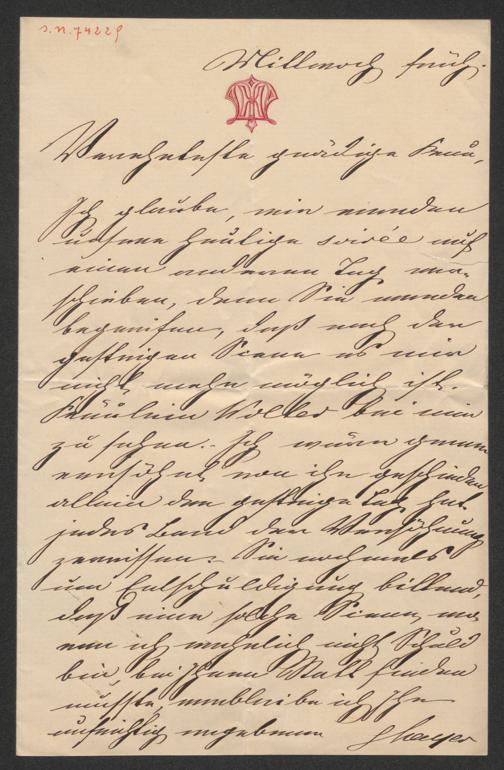 I.N. 74229
Mittwoch früh.
Verehrteste gnädige Frau,
Ich glaube, wir werden
unsere heutige soirée auf
einen anderen Tag ver-
schieben, denn Sie werden
begreifen, daß nach der
gestrigen Scene es mir
nicht mehr möglich ist.
Fräulein Wolter bei mir
zu sehen. - Ich wäre gerne
versöhnt von ihr geschieden
allein der gestrige Tag hat
jedes Band der Versöhnung
zerrissen. - Sie nochmals
um Entschuldigung bittend,
daß eine solche Scene, wo
ran ich wahrlich nicht Schuld
bin, bei Ihnen Statt finden
mußte, verbleibe ich Ihr
aufrichtig ergebener